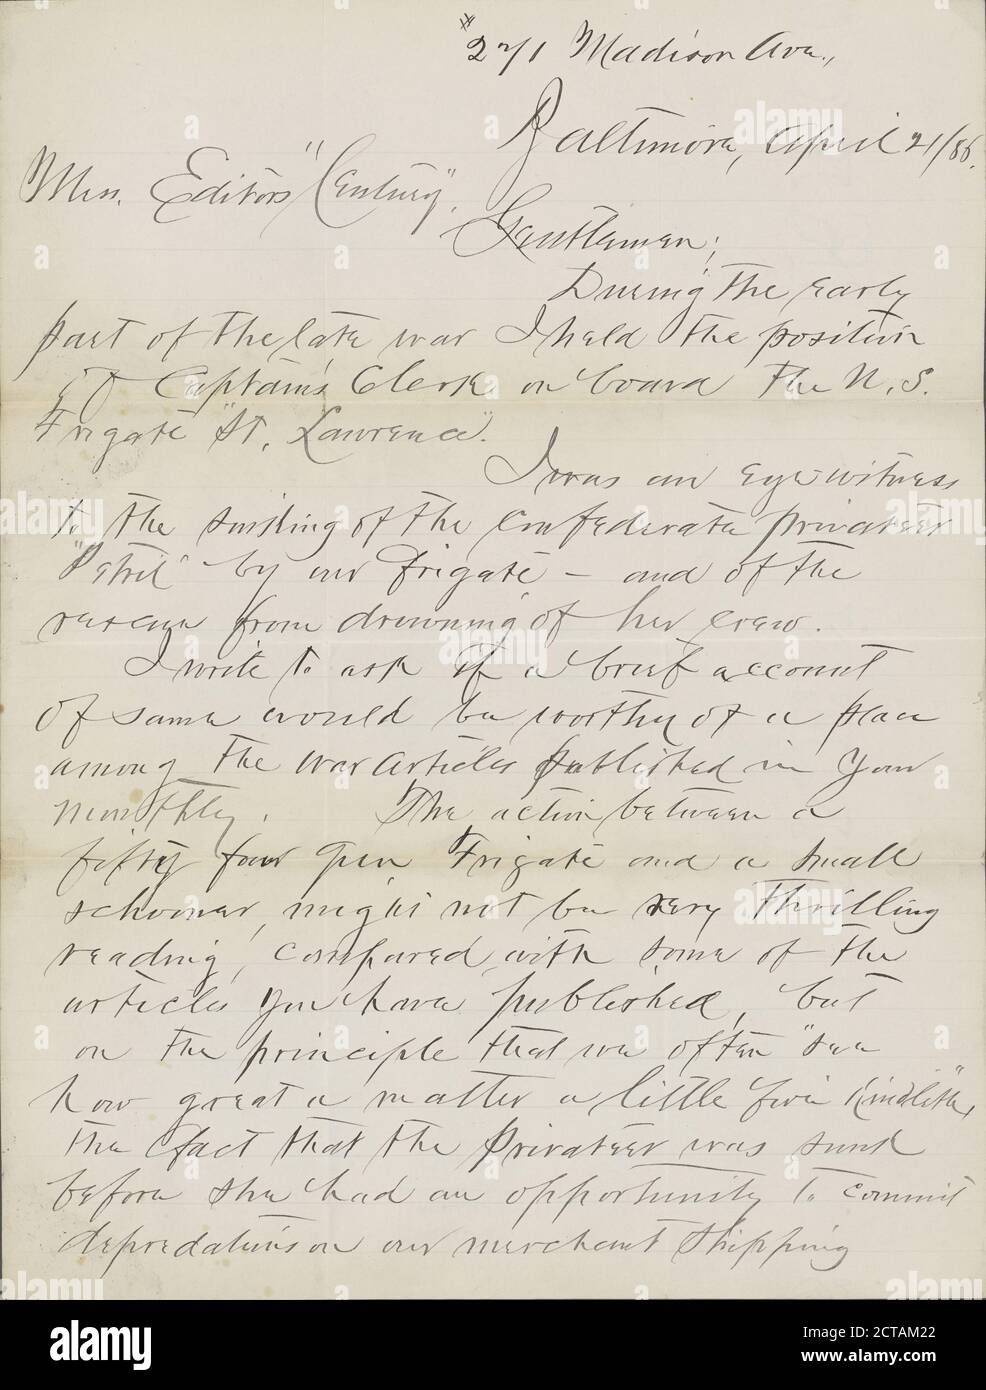 #271 Madison Ave.,
Baltimore, April 21/86.
Mess. Editors "Century",
Gentlemen;
During the early
part of the late war I held the position
of Captain's Clerk on board the U.S.
Frigate "St. Lawrence".
I was an eye witness
to the sinking of the Confederate privateer
"Petrel" by our frigate – and of the
rescue from drowning of her crew.
I write to ask if a brief account
of same would be worthy of a place
among the war articles published in your
monthly. The action between a
fifty four gun Frigate and a small
schooner, might not be very thrilling
reading, compared with some of the
articles you have published, but
on the principle that we often "see
how great a matter a little fire kindleth",
the fact that the Privateer was sunk
before she had an opportunity to commit
depredations on our merchant shipping
alamy
a
alamy
Image ID: 2CTAM22
www.alamy.com